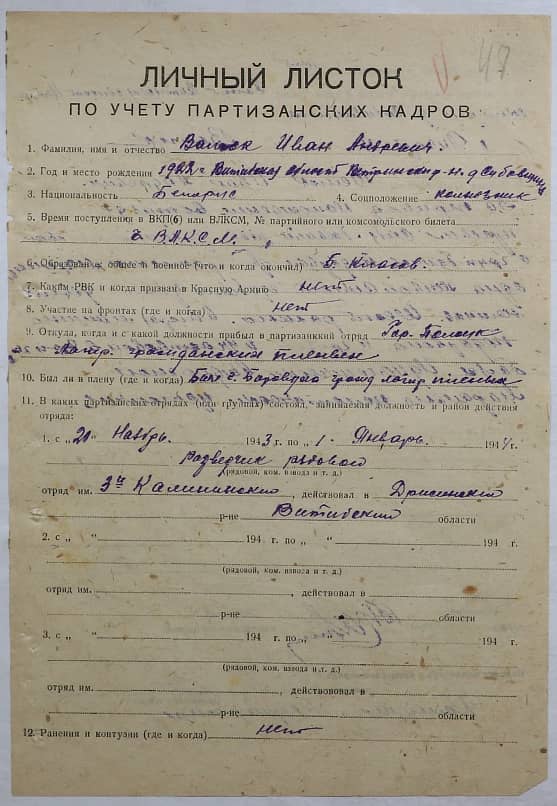 47
ЛИЧНЫЙ ЛИСТОК
ПО УЧЕТУ ПАРТИЗАНСКИХ КАДРОВ
1. Фамилия, имя и отчество Иван Андреевич
2. Год и место рождения 1922 г. Витебская область
3. Национальность Беларус 4. Соцположение колхозник
5. Время поступления в ВКП(б) или ВЛКСМ, № партийного или комсомольского билета
ВЛКСМ
6. Образование общее и военное (что и когда окончил) 6. классов.
7. Каким РВК и когда призван в Красную Армию нет
8. Участие на фронтах (где и когда) нет
9. Откуда, когда и с какой должности прибыл в партизанский отряд Гор. Полоцк
лагер. гражданский пленных
10. Был ли в плену (где и когда) Был с. Боровуха гражд лагир пленых
11. В каких партизанских отрядах (или группах) состоял, занимаемая должность и район действия
отряда:
1. с „20" Ноябрь. 1943 г. по „1" Январь. 1944 г.
Разведчик рядовой
(рядовой, ком. взвода и т. д.)
отряд им. 3й Калининский, действовал в Дрисенский
р-не Витибский области
2. с „ " 194 г. по „ " 194 г.
(рядовой, ком. взвода и т. д.)
отряд им. , действовал в
р-не области
3. с „ " 194 г. по „ " 194 г.
(рядовой, ком. взвода и т. д.)
отряд им. , действовал в
р-не области
12. Ранения и контузии (где и когда) нет